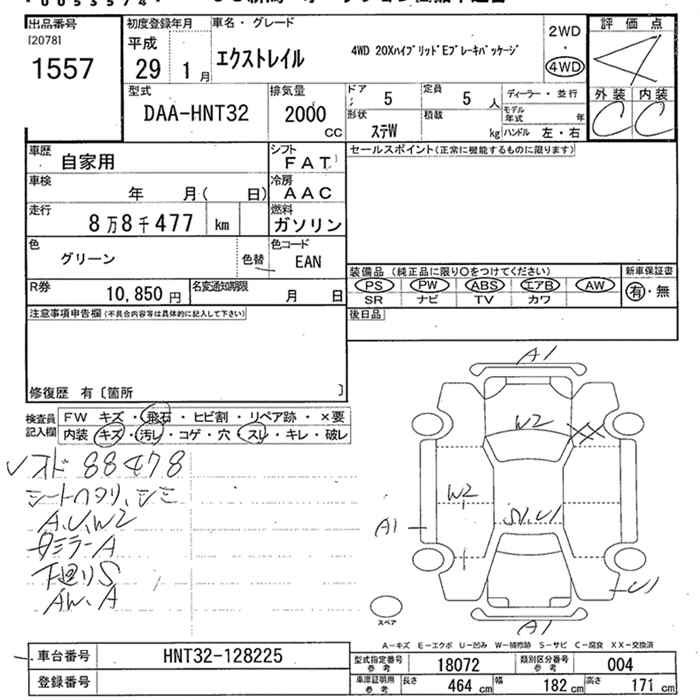 出品番号
[2078]
1557
初度登録年月
平成
29年 1月
車名・グレード
エクストレイル
4WD 20XハイブリッドEブレーキパッケージ
2WD
・
4WD
評価点
4
外装 内装
C C
型式
DAA-HNT32
排気量
2000
CC
ドア
5
定員
5 人
ディーラー・並行
形状
ステW
積載
kg
モデル年式 年
ハンドル 左・右
車歴
自家用
シフト
FAT
セールスポイント(正常に機能するものに限ります)
車検
年 月( 日)
冷房
AAC
走行
8万8千477 km
燃料
ガソリン
色
グリーン
色替
色コード
EAN
装備品 (純正品に限り○をつけてください)
新車保証書
PS PW ABS エアB AW
有・無
SR ナビ TV カワ
R券
10,850 円
名変通知期限
月 日
後日品
注意事項申告欄(不具合内容等は具体的に記入して下さい)
修復歴 有〔箇所 〕
検査員記入欄
FW キズ・飛石・ヒビ割・リペア跡・×要
内装 キズ・汚レ・コゲ・穴・スレ・キレ・破レ
メオド 88478
シートヘタリ、シミ
A,U,W2
下廻りS
AW、A
A1
W2
XX
W2
A1
U1
A1
スペア
A-キズ E-エクボ U-凹み W-補修跡 S-サビ C-腐食 XX-交換済
車台番号
HNT32-128225
登録番号
型式指定番号参考
18072
類別区分番号参考
004
車庫証明用参考
長さ 464 cm 幅 182 cm 高さ 171 cm